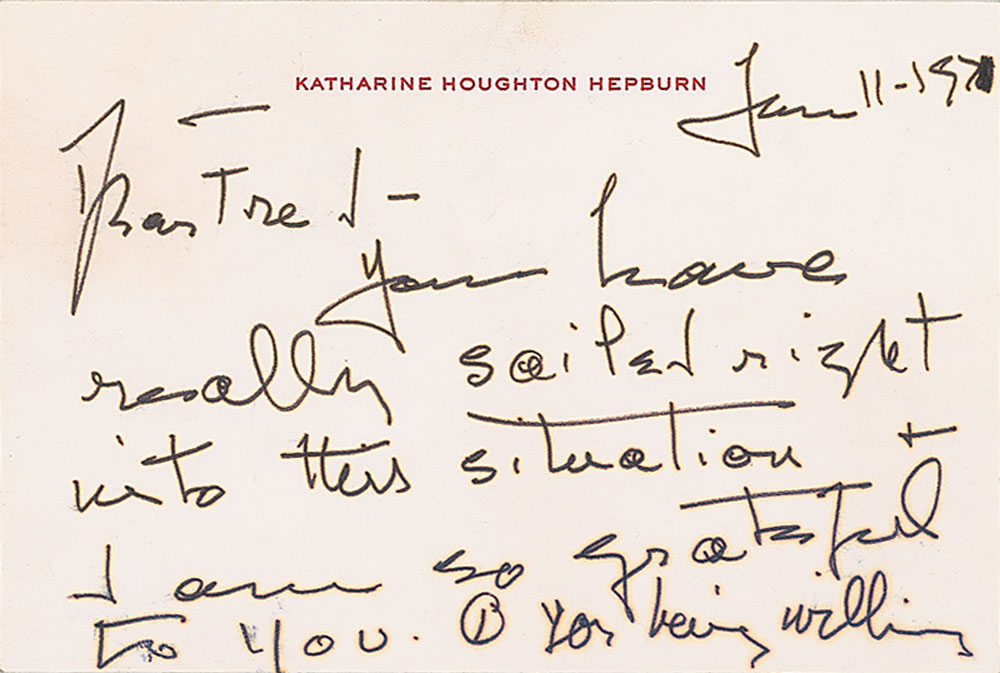 KATHARINE HOUGHTON HEPBURN
11-197
Dear Fred -
you have
really sailed right
into this situation +
I am so grateful
to you. ① For being willing